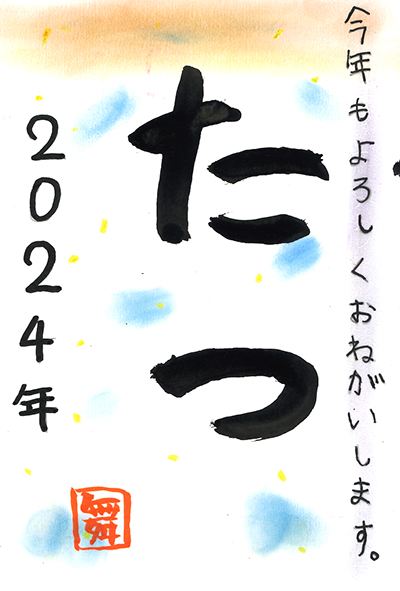 今年もよろしくおねがいします。
たつ
2024年
舞